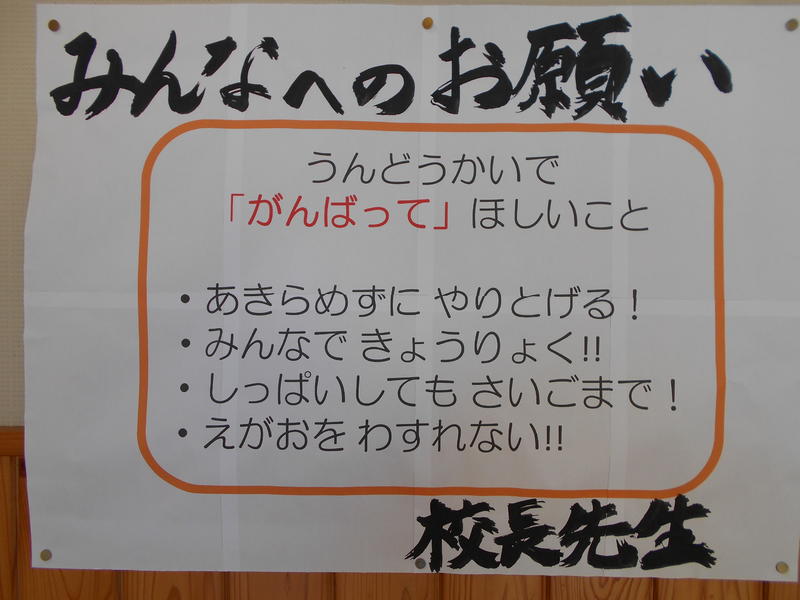 みんなへのお願い
うんどうかいで
「がんばって」ほしいこと
・あきらめずに やりとげる！
・みんなで きょうりょく!!
・しっぱいしても さいごまで！
・えがおを わすれない!!
校長先生